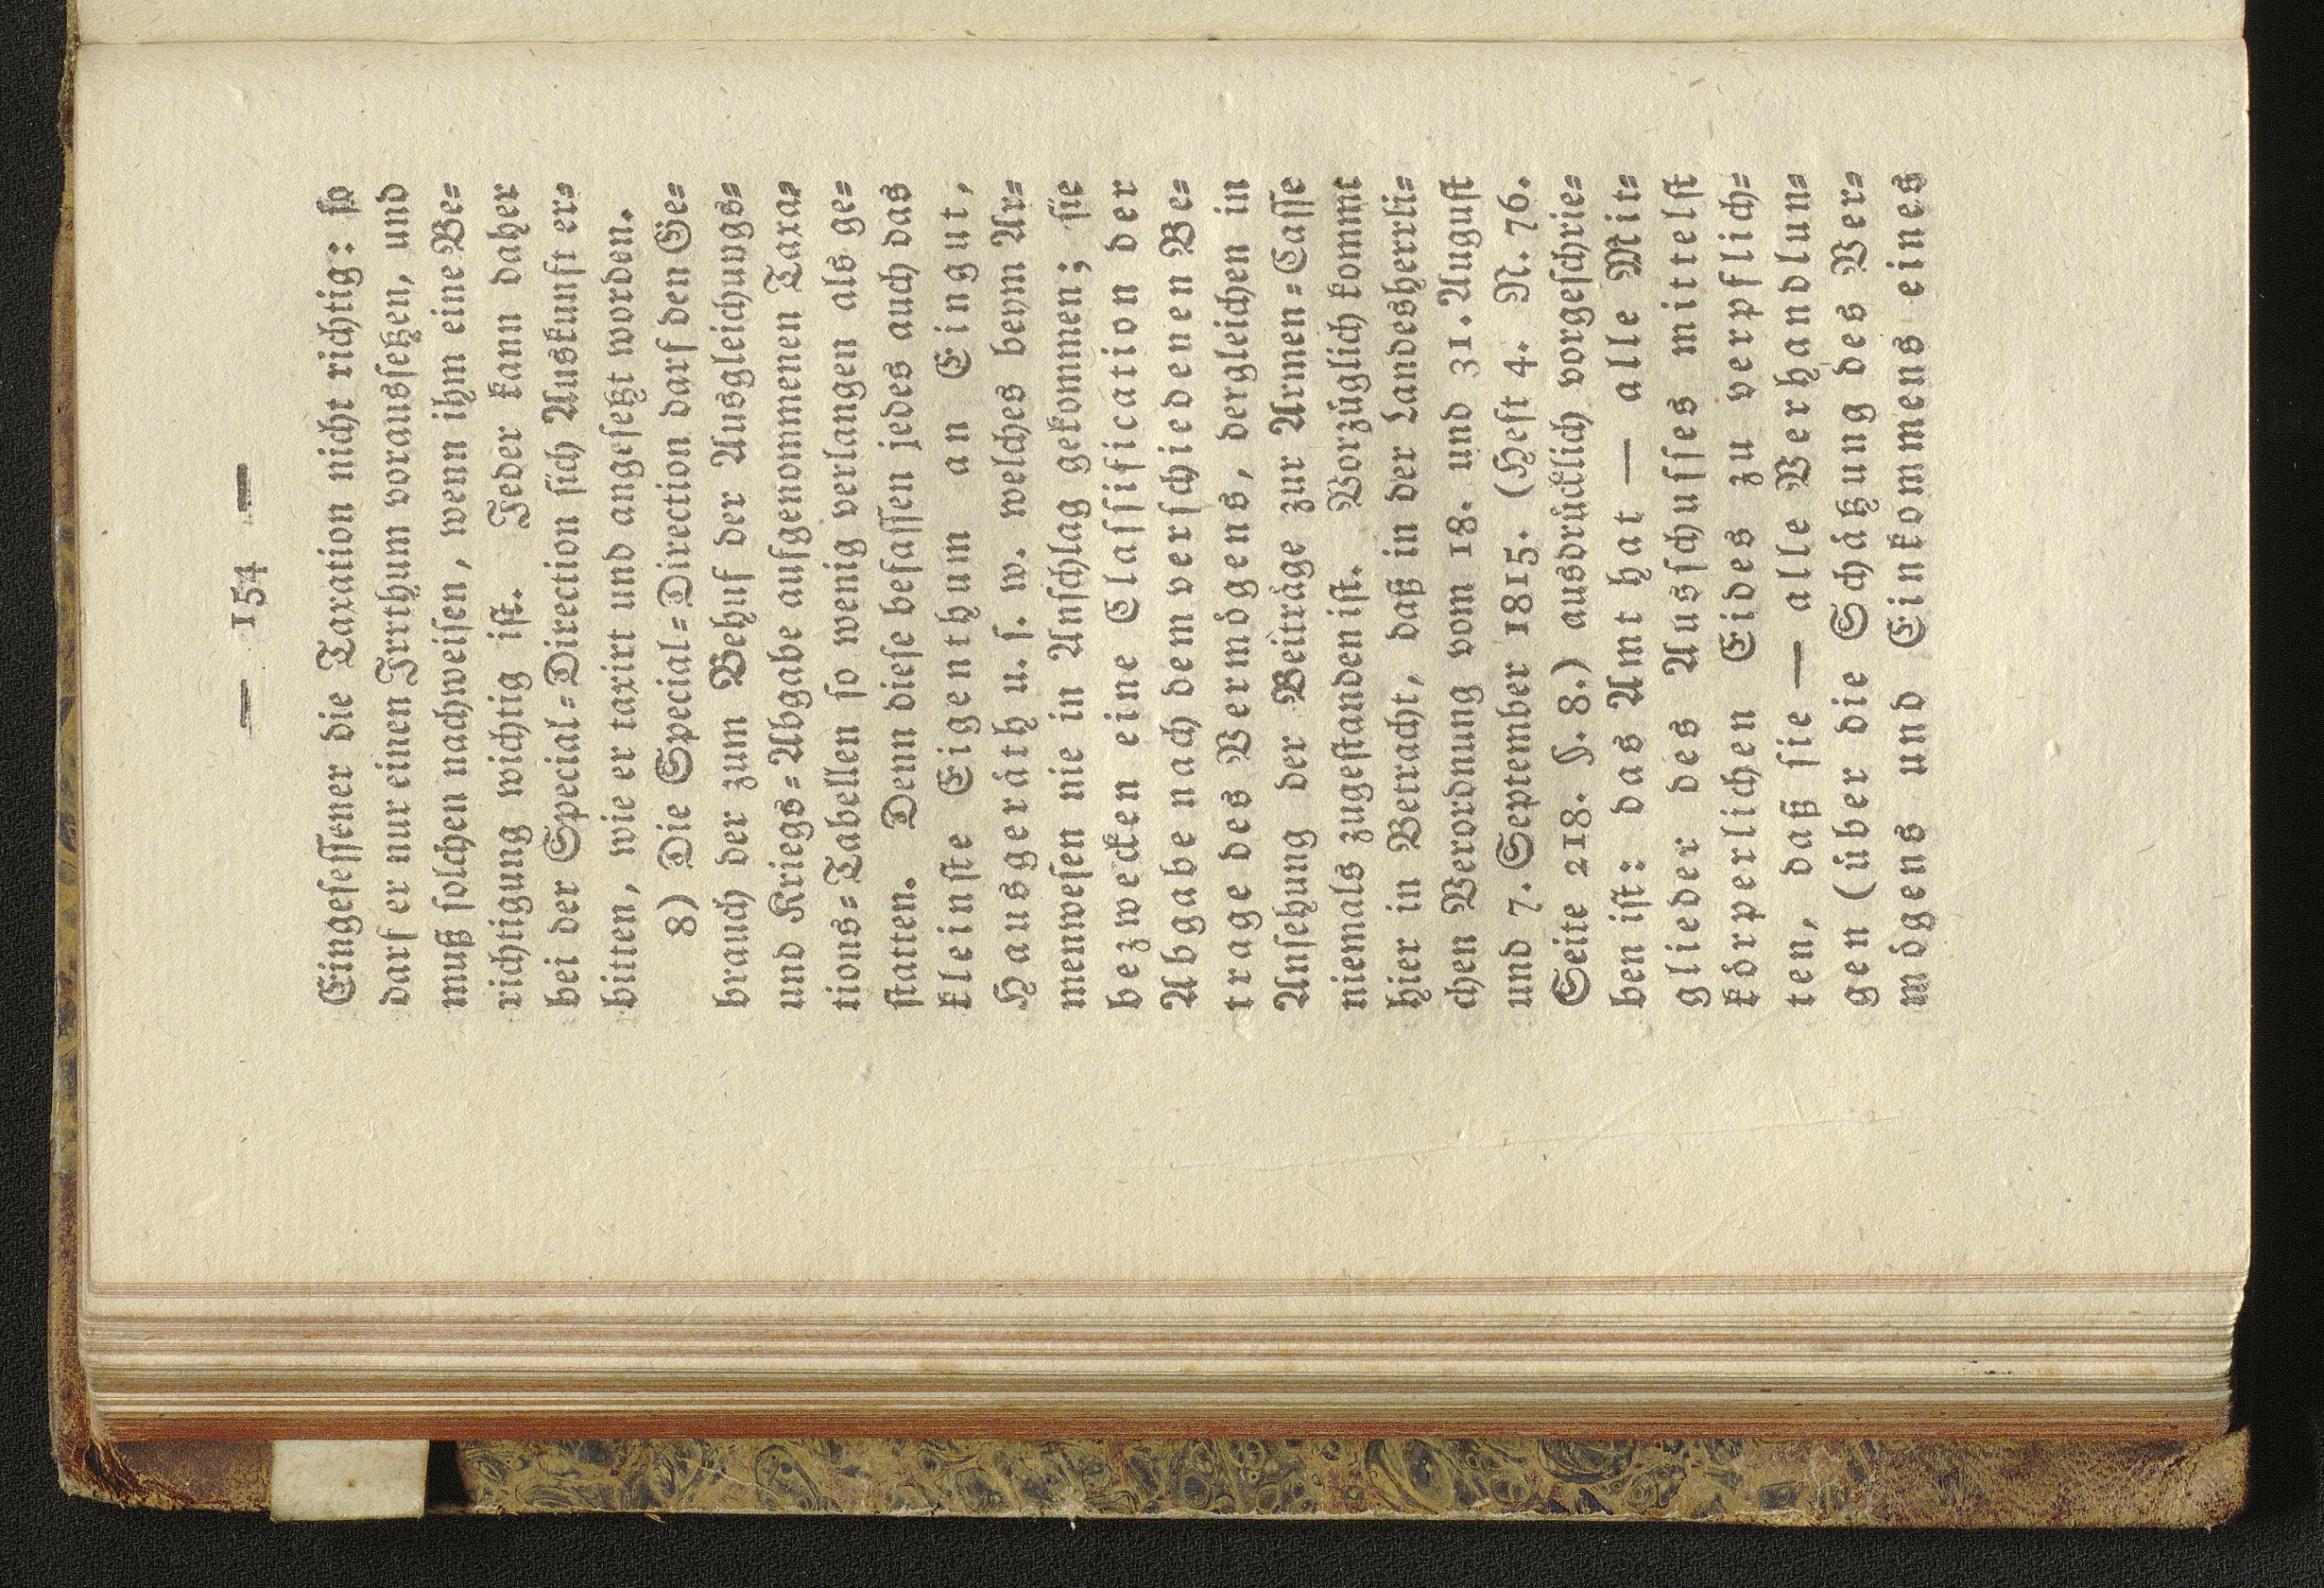 — 154 —
Eingesessener die Taxation nicht richtig: so
darf er nur einen Irrthum voraussetzen, und
muß solchen nachweisen, wenn ihm eine Be=
richtigung wichtig ist. Jeder kann daher
bei der Special=Direction sich Auskunft er=
bitten, wie er taxirt und angesetzt worden.
8) Die Special=Direction darf den Ge=
brauch der zum Behuf der Ausgleichungs=
und Kriegs=Abgabe aufgenommenen Taxa=
tions=Tabellen so wenig verlangen als ge=
statten. Denn diese befassen jedes auch das
kleinste Eigenthum an Eingut,
Hausgeräth u. s. w. welches beym Ar=
menwesen nie in Anschlag gekommen; sie
bezwecken eine Classification der
Abgabe nach dem verschiedenen Be=
trage des Vermögens, dergleichen in
Ansehung der Beiträge zur Armen=Casse
niemals zugestanden ist. Vorzüglich kommt
hier in Betracht, daß in der Landesherrli=
chen Verordnung vom 18. und 31. August
und 7. September 1815. (Heft 4. N. 76.
Seite 218. §. 8.) ausdrücklich vorgeschrie=
ben ist: das Amt hat — alle Mit=
glieder des Ausschusses mittelst
körperlichen Eides zu verpflich=
ten, daß sie — alle Verhandlun=
gen (über die Schätzung des Ver=
mögens und Einkommens eines